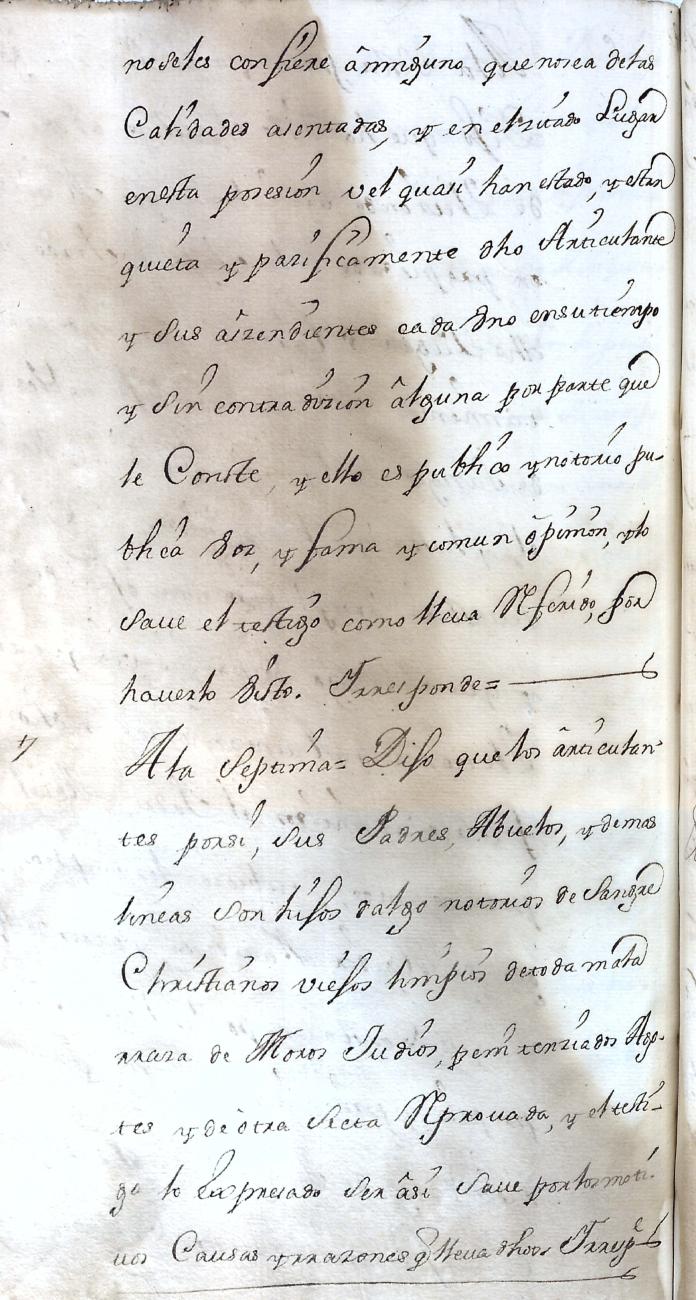 no seles confiere â ninguno que no sea delas
Calidades asentadas, y en el zitado Lugar
en esta posesion vel quasi han estado, y estan
quieta y pazificamente dho Articulante
y Sus aszendientes cada Vno en su tiempo
y Sin contradizion âlguna por parte que
le Conste, y ello es publico y notorio pu-
blica Voz, y fama y comun ôpinion, y lo
save el testigo como lleva Referido, por
haverlo Visto. Yrresponde=
7 A la Septima= Dijo que los ârticulan-
tes porsi, sus Padres, Abuelos, y demas
lineas Son hijos dalgo notorios de Sangre
Christianos viejos limpios de toda mala
rraza de Moros Judios, penitenziados Ago-
tes y de otra Secta Reprovada, y el testi-
go lo Expresado Ser âsi Save por los moti-
vos Causas y rrazones q lleva dhos. Yrrespe